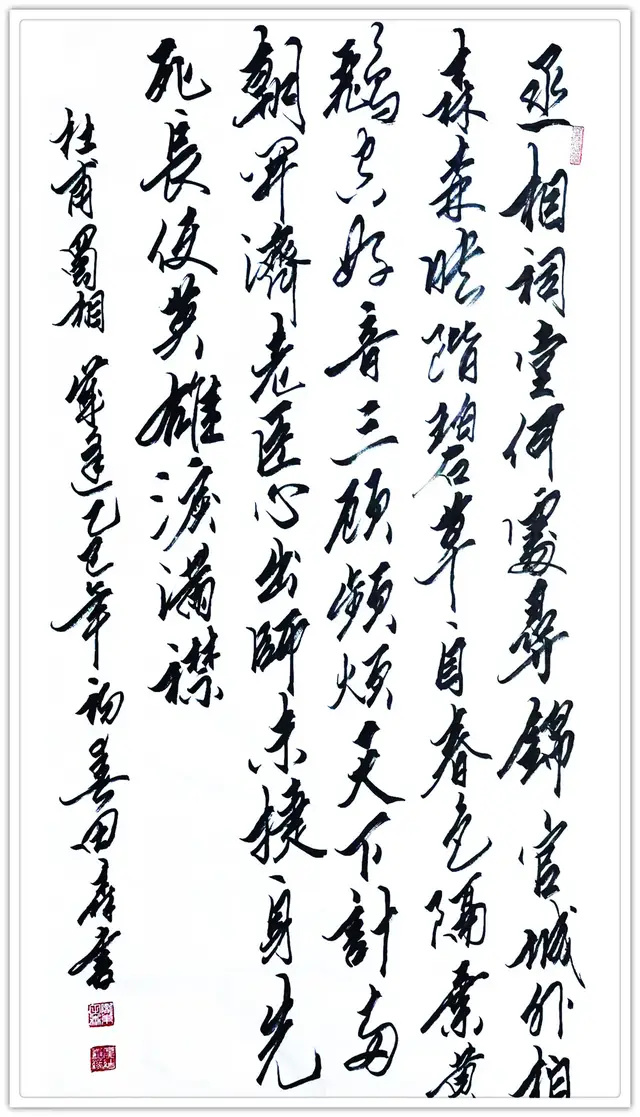 丞相祠堂何處尋錦官城外柏
森森映階碧草自春色隔葉黃
鸝空好音三顧頻煩天下計兩
朝開濟老臣心出師未捷身先
死長使英雄淚滿襟
杜甫蜀相 歲逢乙巳年初善田森書